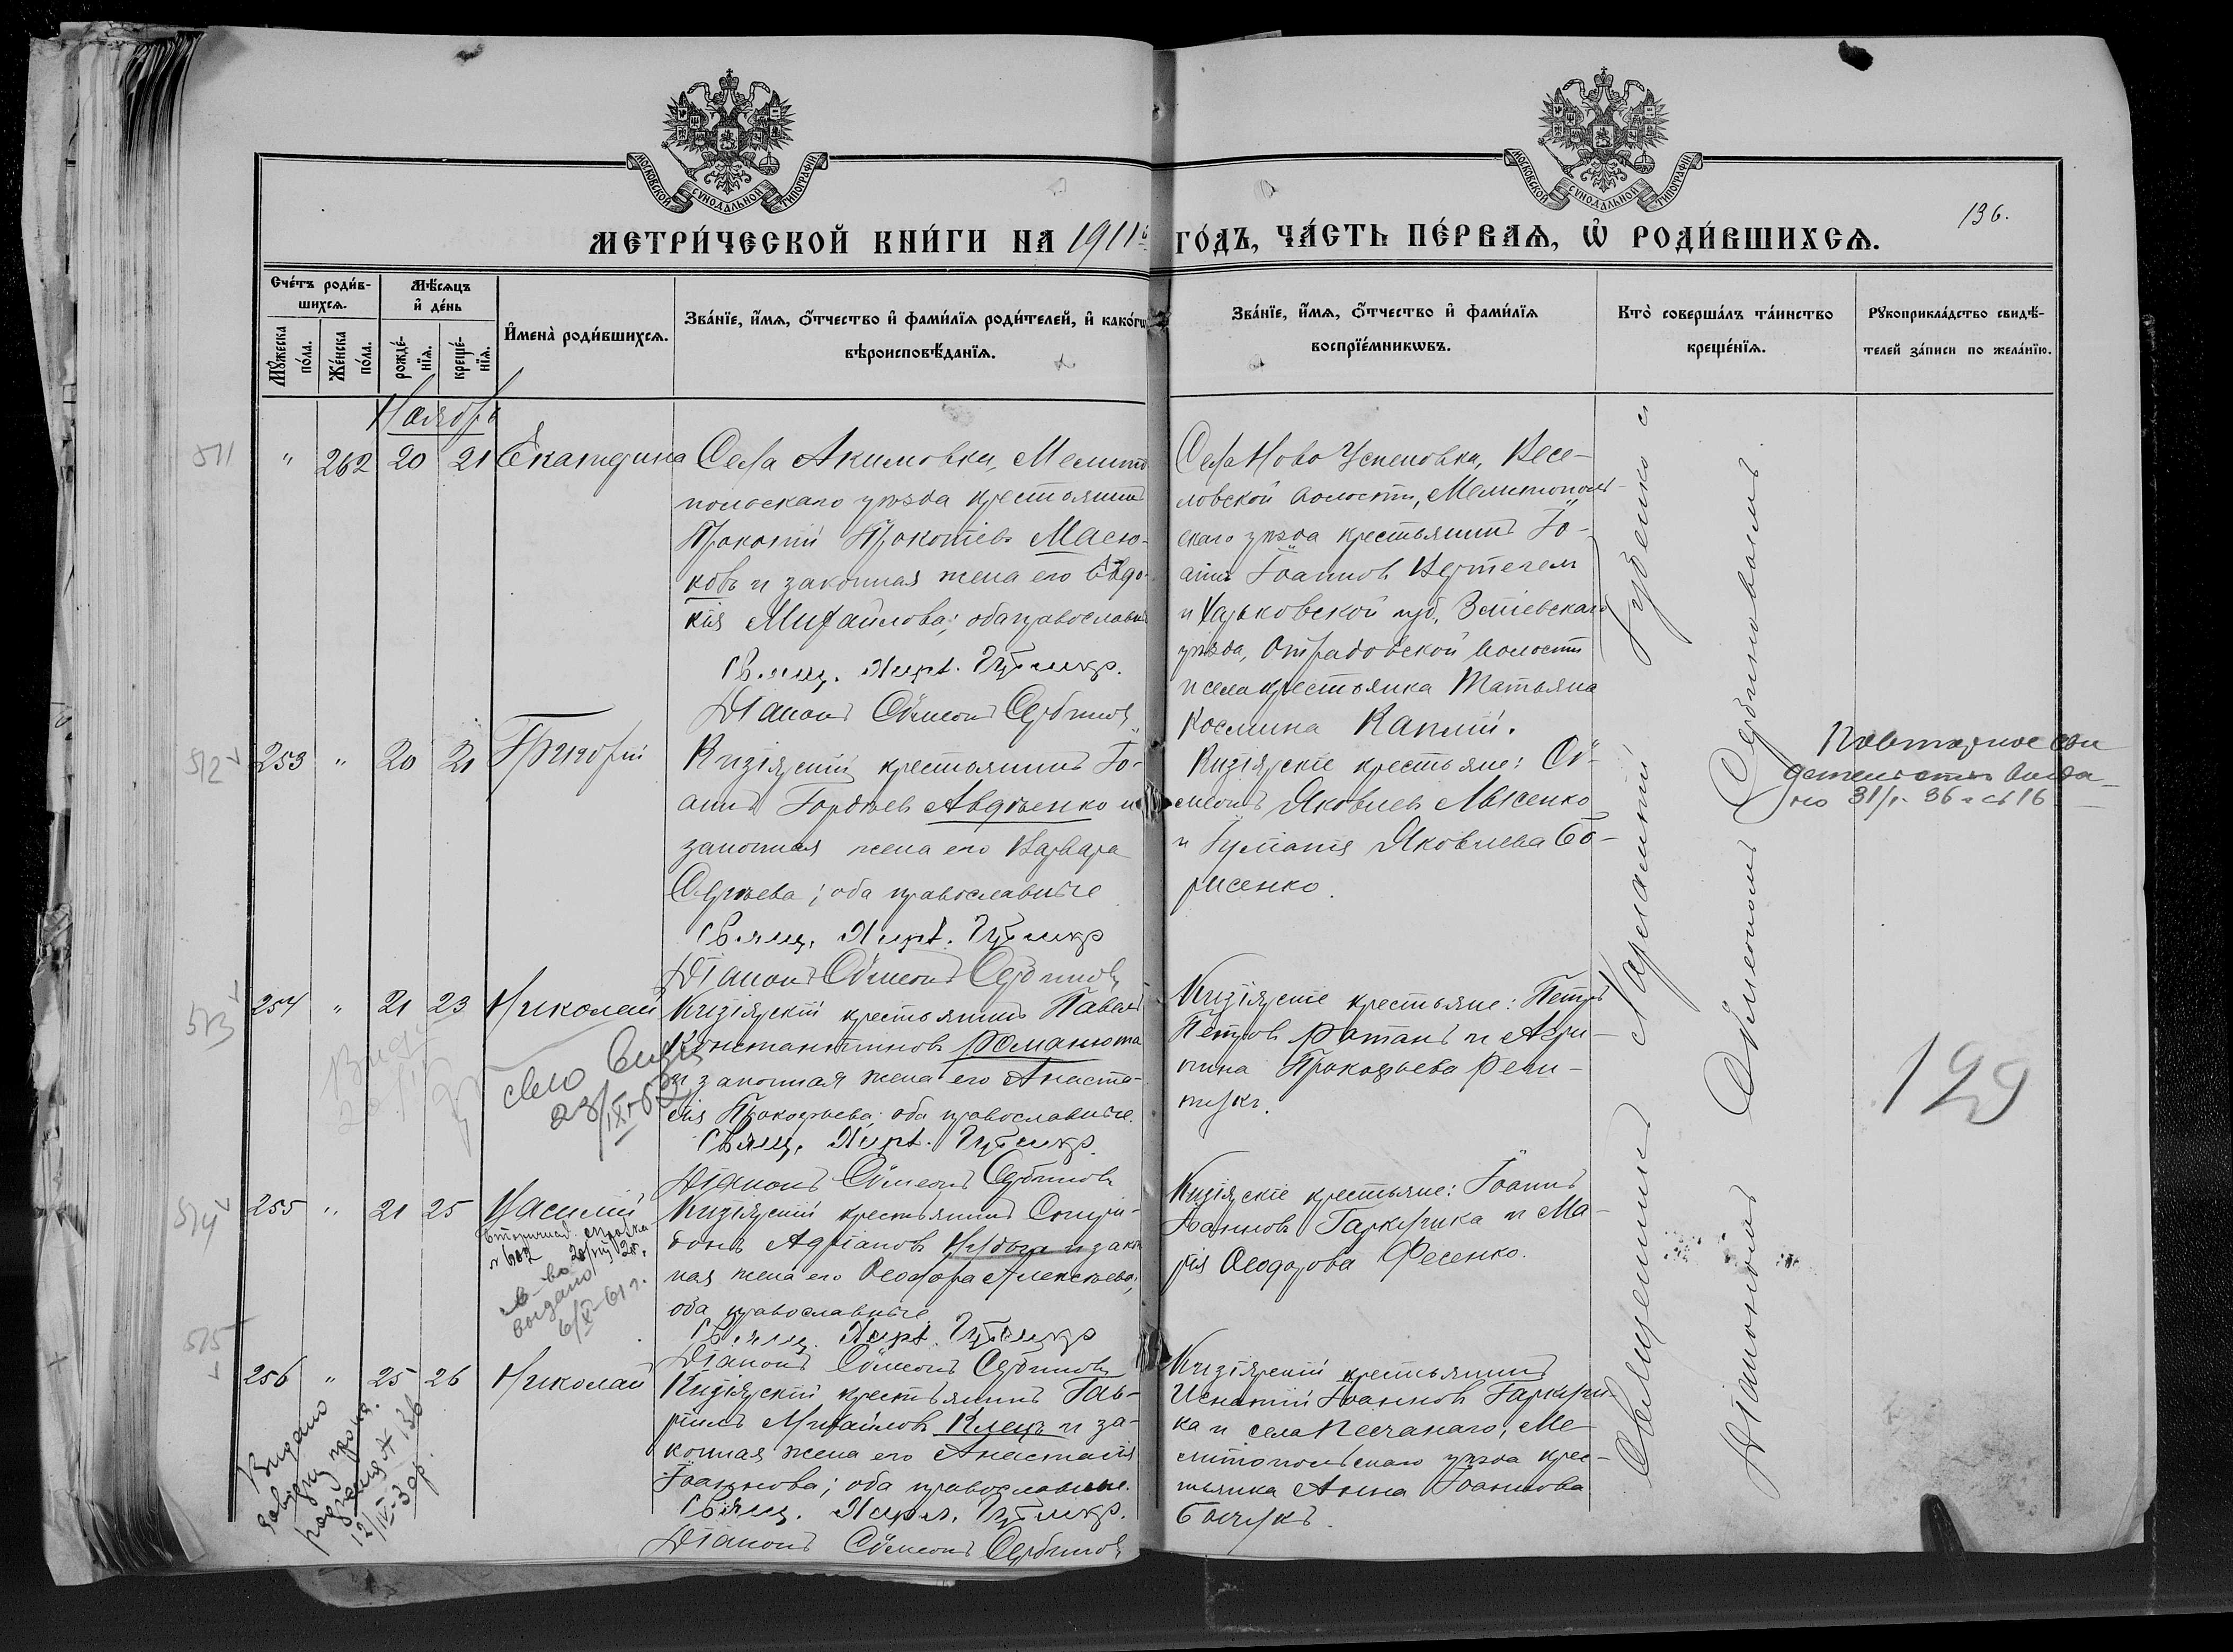 МОСКОВСКОЙ СУНОДАЛЬНОЙ ТИПОГРАФІИ
МОСКОВСКОЙ СУНОДАЛЬНОЙ ТИПОГРАФІИ
136.
МЕТРИ́ЧЕСКОЙ КНИ́ГИ НА 1911й ГО́ДЪ, ЧА́СТЬ ПЕ́РВАѦ, Ѡ҆ РОДИ́ВШИХСѦ.
Сче́тъ роди́в-
шихсѧ.
Мꙋ́жеска по́ла.
Же́нска по́ла.
Мѣ́сѧцъ
и҆ де́нь
рожде́-
нїѧ.
креще́-
нїѧ.
И҆мена̀ роди́вшихсѧ.
Зва́нїе, и҆́мѧ, ѻ҆́тчество и҆ фами́лїѧ роди́телей, и҆ како́гѡ
вѣроисповѣ́данїѧ.
Зва́нїе, и҆́мѧ, ѻ҆́тчество и҆ фами́лїѧ
воспрїе́мникѡвъ.
Кто̀ соверша́лъ та́инство
креще́нїѧ.
Рꙋкоприкла́дство свидѣ́-
телей за́писи по жела́нїю.
Ноябрь
511
" 262 20 21 Екатерина
Села Акимовки, Мелито
польскаго уѣзда крестьянинъ
Прокопій Прокопіевъ Масю-
ковъ и законная жена его Евдо-
кія Михайлова; оба православн
Свящ.
Діаконъ Сѵмеонъ Сербиновъ
Села Ново Успеновки, Весе-
ловской волости, Мелитополь-
скаго уѣзда крестьянинъ Іо-
аннъ Іоанновъ Вертегел
и Харьковской губ. Зміевскаго
уѣзда, Отрадовской волости
и села крестьянка Татьяна
Космина Каплій.
512
253 " 20 21 Григорій
Кизіярскій крестьянинъ Іо-
аннъ Гордѣевъ Авдѣенко и
законная жена его Варвара
Сергѣева; оба православные
Свящ.
Діаконъ Сѵмеонъ Сербиновъ
Кизіярскіе крестьяне: Сѵ-
меонъ Яковлевъ Лысенко
и Іуліанія Яковлева Бо-
рисенко.
Повторное сви
детельство выда-
но 31/ 36 г 16
513
254 " 21 23 Николай
23/IX-6
Кизіярскій крестьянинъ Павелъ
Константиновъ Романюта
и законная жена его Анаста-
сія Прокофьева; оба православные.
Свящ.
Діаконъ Сѵмеонъ Сербиновъ
Кизіярскіе крестьяне: Петръ
Петровъ Ротань и Агри-
пина Прокофьева Реши-
129
514
255 " 21 25 Василій
вторичная справка
выдано
6/X-61 г.
Кизіярскій крестьянинъ Спири-
донъ Адріановъ и закон
ная жена его Ѳеодора Алексѣева;
оба православные
Свящ.
Діаконъ Сѵмеонъ Сербиновъ
Кизіярскіе крестьяне: Іоаннъ
Іоанновъ Гаркуша и Ма-
рія Ѳеодорова Фесенко.
515
256 " 25 26 Николай
Видано
12/IV-39р.
Кизіярскій крестьянинъ Гав-
ріилъ Михайловъ Клецъ и за-
конная жена его Анастасія
Іоаннова; оба православные.
Свящ.
Діаконъ Сѵмеонъ Сербиновъ
Кизіярскій крестьянинъ
Игнатій Іоанновъ
ка и села Песчанаго, Ме-
литопольскаго уѣзда крес-
тьянка Анна Іоаннова
Священникъ
Діакономъ Сѵмеономъ Сербиновымъ